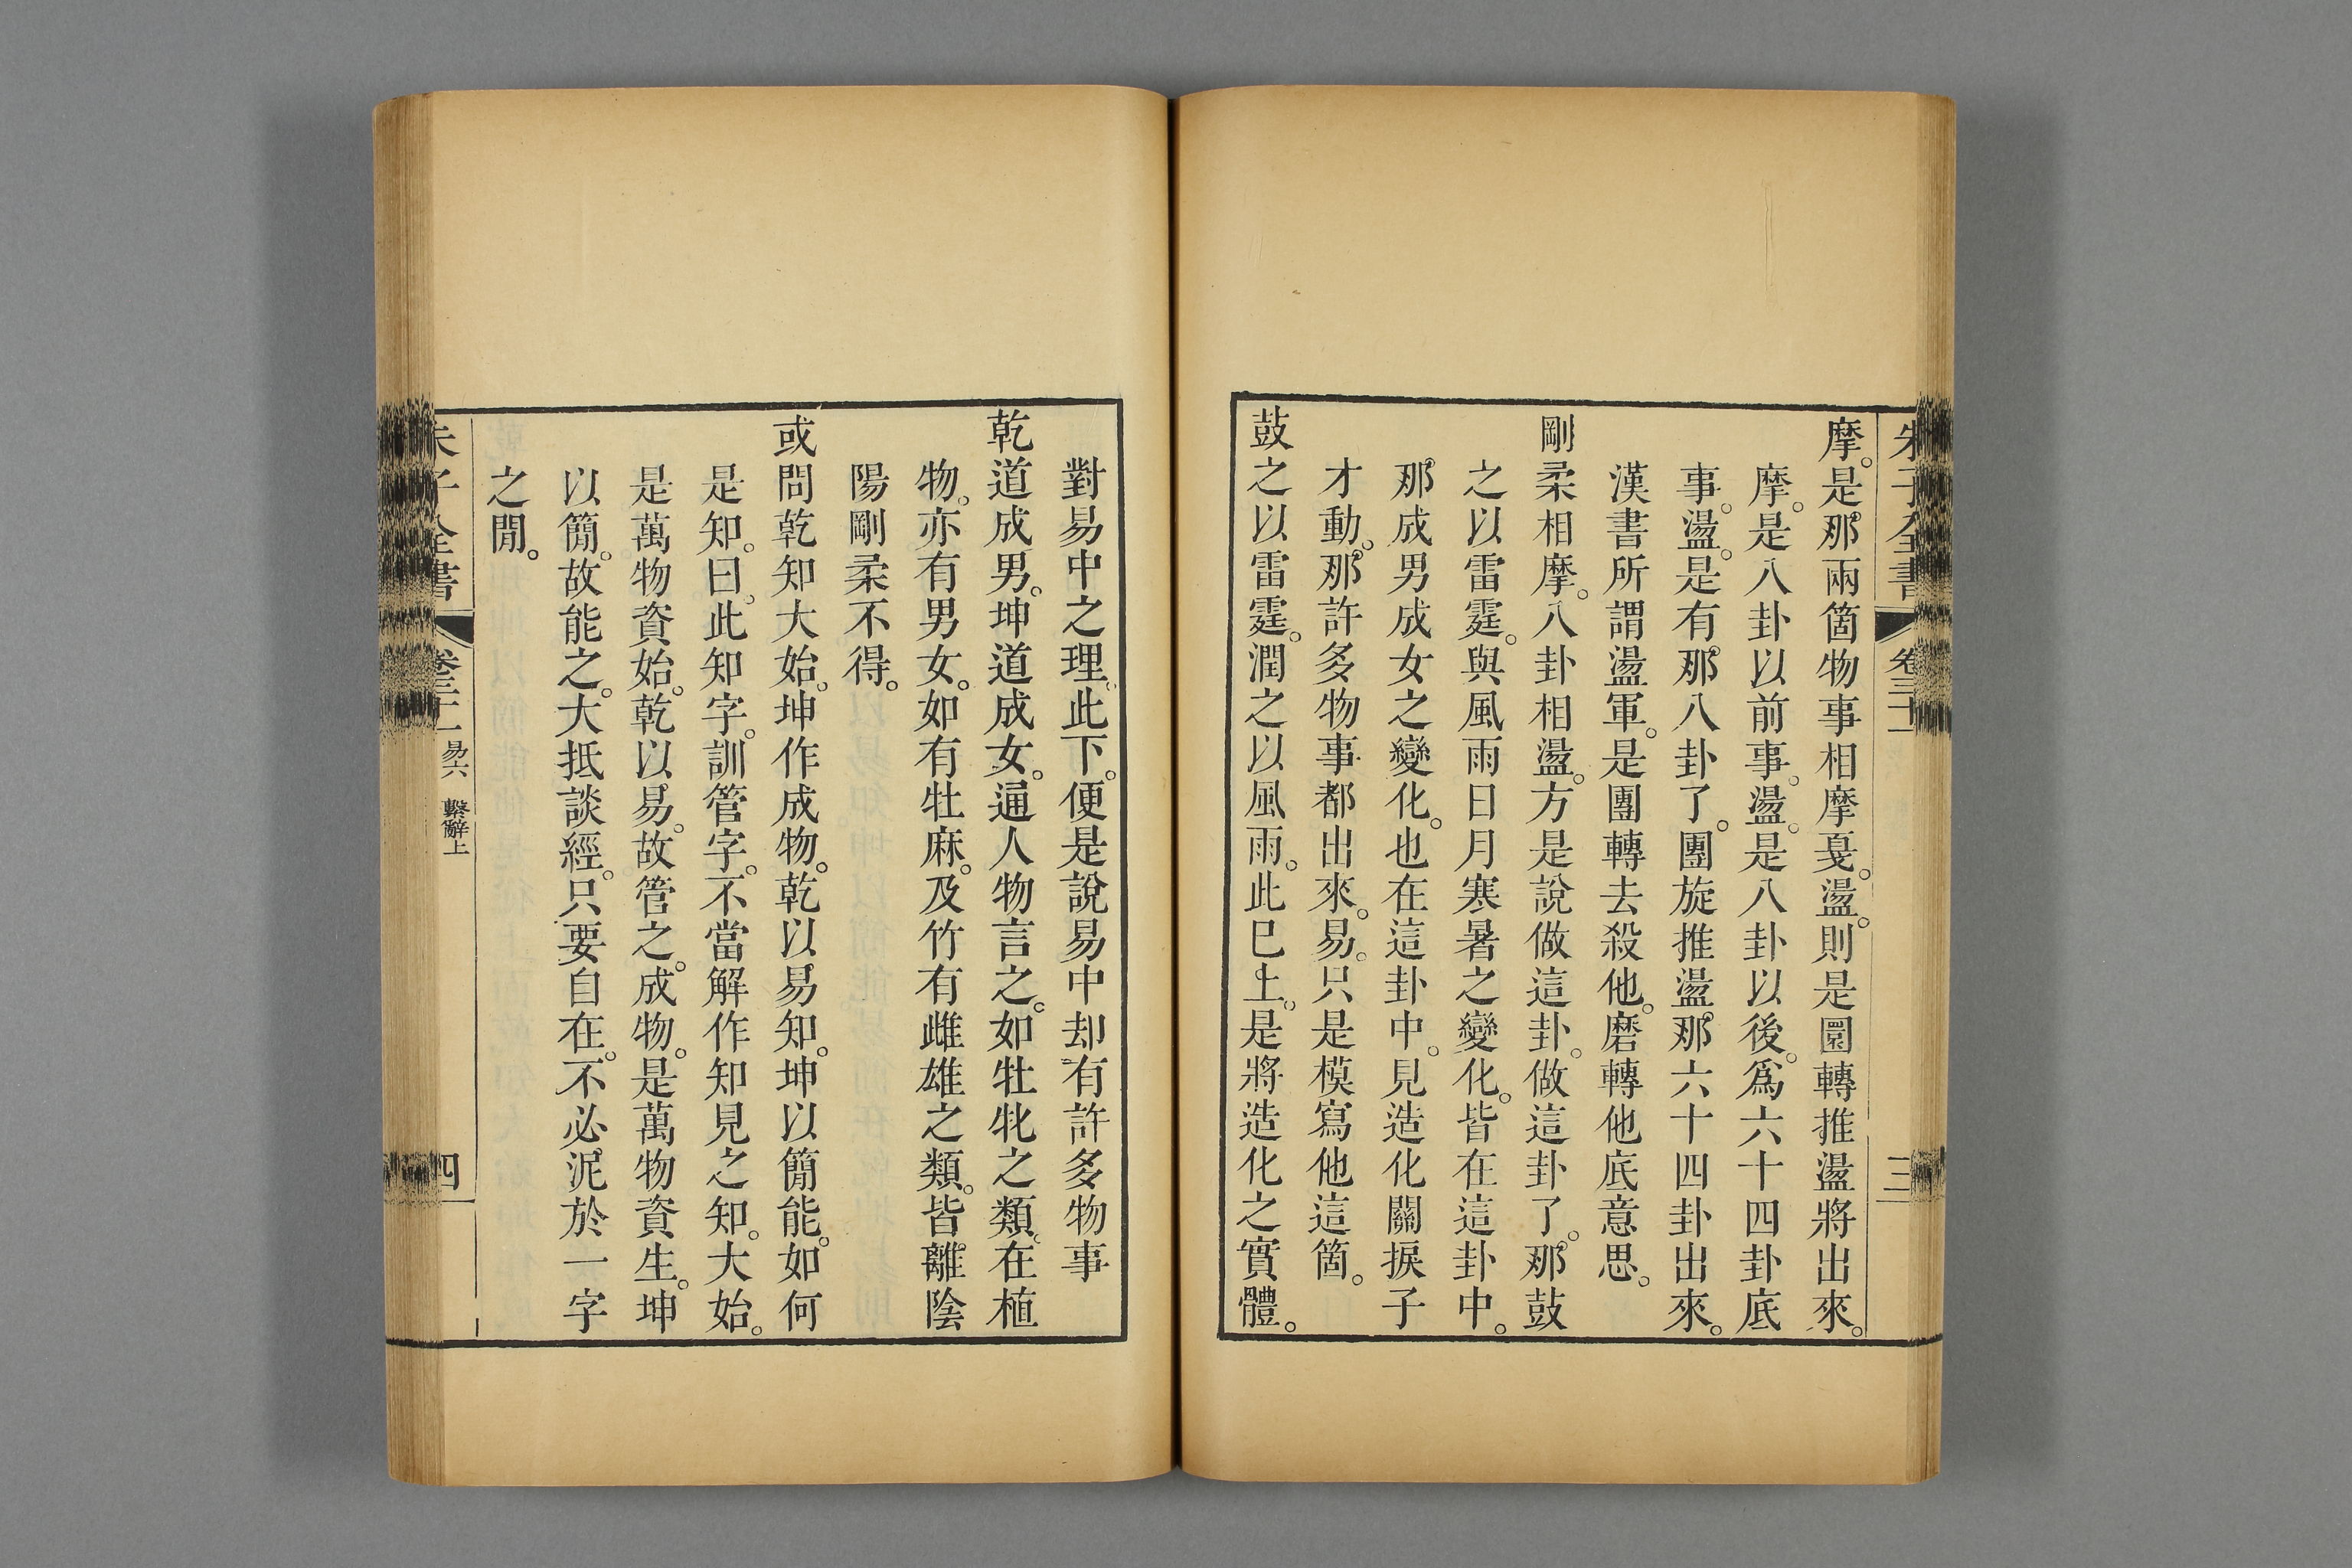 朱子全書 卷三十一 三
摩。是那兩箇物事相摩戛。盪。則是圜轉推盪將出來。
摩。是八卦以前事。盪。是八卦以後。爲六十四卦底
事。盪。是有那八卦了。團旋推盪那六十四卦出來。
漢書所謂盪軍。是團轉去殺他。磨轉他底意思。
剛柔相摩。八卦相盪。方是說做這卦。做這卦了。那鼓
之以雷霆。與風雨日月寒暑之變化。皆在這卦中。
那成男成女之變化。也在這卦中。見造化關捩子
才動。那許多物事都出來。易。只是模寫他這箇。
鼓之以雷霆。潤之以風雨。此已上。是將造化之實體。
對易中之理。此下。便是說易中却有許多物事
乾道成男。坤道成女。通人物言之。如牡牝之類。在植
物。亦有男女。如有牡麻。及竹有雌雄之類。皆離陰
陽剛柔不得。
或問乾知大始。坤作成物。乾以易知。坤以簡能。如何
是知。曰。此知字。訓管字。不當解作知見之知。大始。
是萬物資始。乾以易。故管之。成物。是萬物資生。坤
以簡。故能之。大抵談經。只要自在。不必泥於一字
之閒。
朱子全書 卷三十一 易六 繫辭上 四